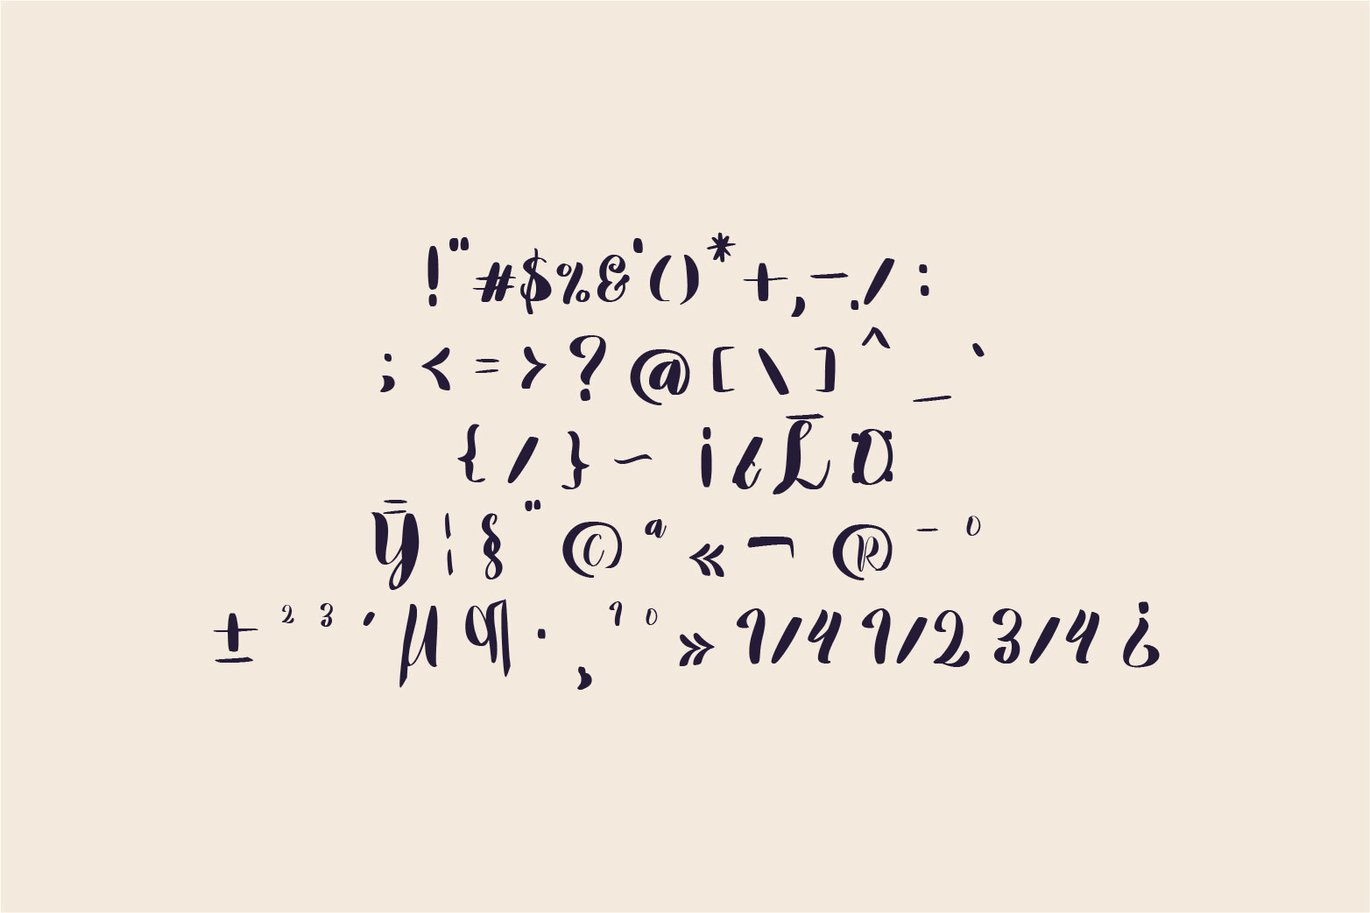 !"#$%&'()*+,-./:
;<=>?@[\]^_`
{/}~¡¢£¤
¥¦§¨©ª«¬®¯º
±²³´µ¶·¸¹º»¼½¾¿